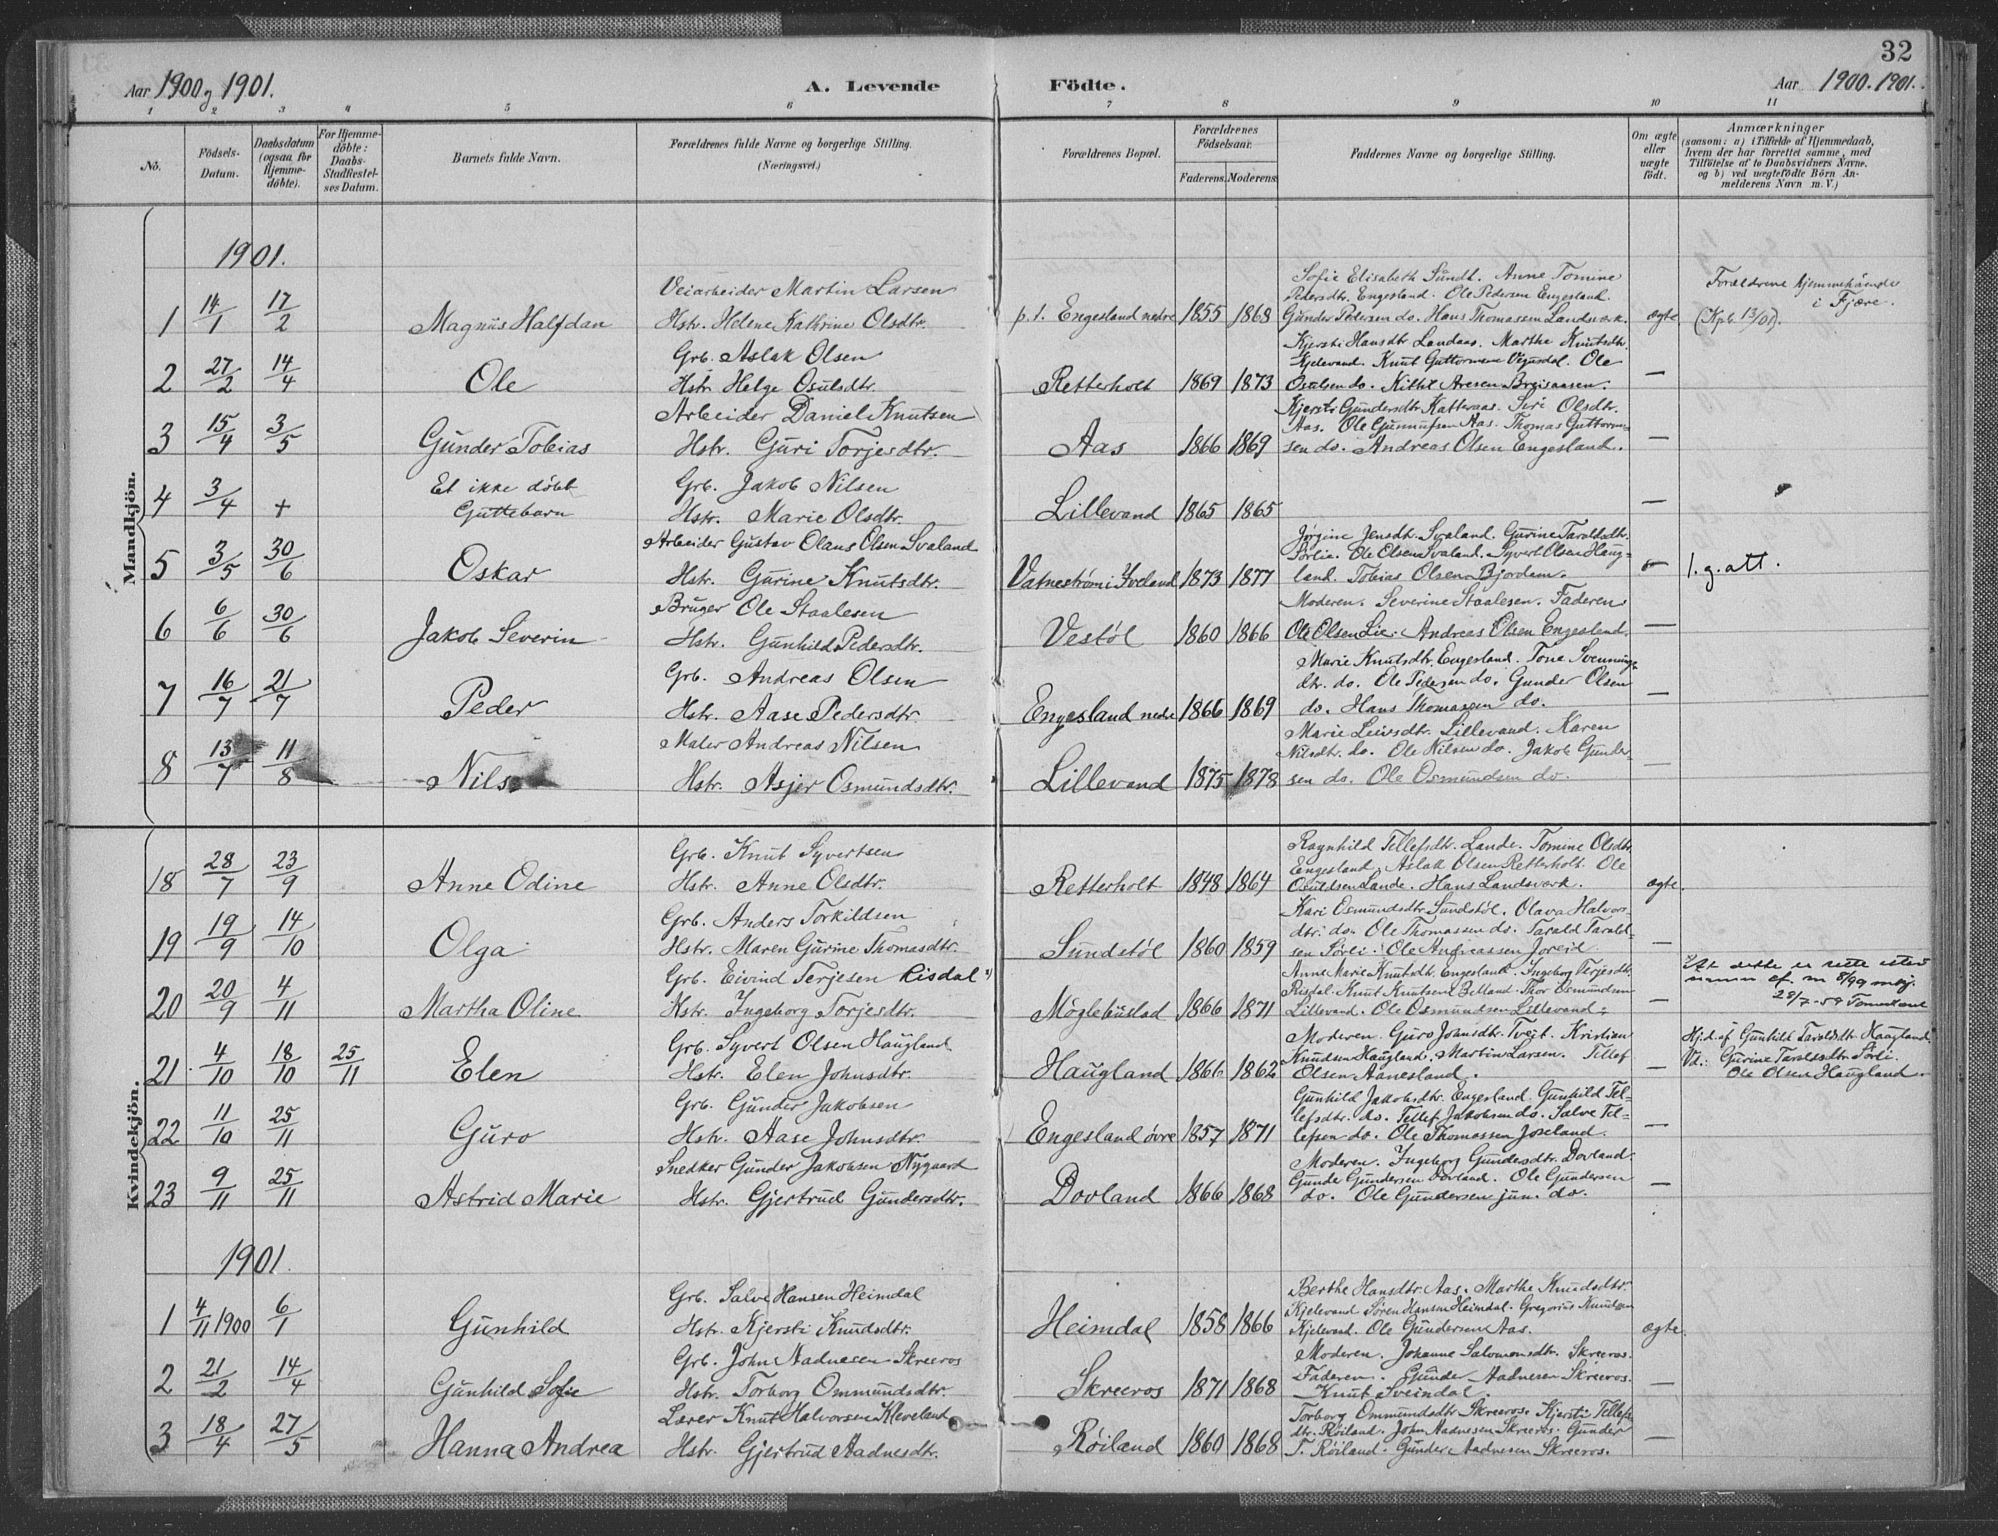 32
Aar 1900 og 1901. A. Levende Födte. Aar 1900. 1901.
1 2 3 4 5 6 7 8 9 10 11
No. Födsels-Datum. Daabsdatum (ogsaa for Hjemmedöbte). For Hjemmedöbte: Daabs-Stadfæstelses Datum. Barnets fulde Navn. Forældrenes fulde Navne og borgerlige Stilling. (Næringsvei.) Forældrenes Bopæl. Forældrenes Födselsaar. Faderens. Moderens. Faddernes Navne og borgerlige Stilling. Om ægte eller uægte födt. Anmærkninger (saasom: a) i Tilfælde af Hjemmedaab, hvem der har forrettet samme, med Tilföielse af to Daabsvidners Navne, og b) ved uægtefödte Börn Anmelderens Navn m. V.)
Mandkjön.
1901.
Veiarbeider Martin Larsen Sofie Elisabeth Sundt. Anne Tomine
Pedersdtr. Engesland. Ole Pedersen Engesland. Forældrene hjemmehørende i Fjære.
1 14/1 17/2 Magnus Halfdan Hstr. Helene Kathrine Olsdtr. p.t. Engesland nedre 1855 1868 Gunder Pedersen do. Hans Thomassen Landsverk. ægte (Kpb. 13/01).
Grb. Aslak Olsen Kjersti Hansdtr Landaas. Marthe Knutsdtr.
Kjelevand. Knut Guttormsen Vegusdal. Ole
2 27/2 14/4 Ole Hstr. Helge Osulsdtr. Retterholt 1869 1873 Osulsen do. Kittel Aresen Breisaasen. —
Arbeider Daniel Knutsen Kjersti Gundersdtr Katteraas. Siri Olsdtr.
Aas. Ole Gunnufsen Aas. Thomas Guttorm-
3 15/4 3/5 Gunder Tobias Hstr. Guri Torjesdtr. Aas 1866 1869 sen do. Andreas Olsen Engesland. —
Et ikke döbt Grb. Jakob Nilsen
4 3/4 + Guttebarn Hstr. Marie Olsdtr. Lillevand 1865 1865 —
Arbeider Gustav Olaus Olsen Svaland Jørgine Jensdtr. Svaland. Gurine Taraldsdtr.
Sørlie. Ole Olsen Svaland. Syvert Olsen Haug-
5 3/5 30/6 Oskar Hstr. Gurine Knutsdtr. Vatnestrøm i Iveland 1873 1877 land. Tobias Olsen Bjordam. — 1. g. att.
Bruger Ole Staalesen Moderen. Severine Staalesen. Faderen.
6 6/6 30/6 Jakob Severin Hstr. Gunhild Pedersdtr. Vestöl 1860 1866 Ole Olsen Lie. Andreas Olsen Engesland. —
Grb. Andreas Olsen Marie Knutsdtr. Engesland. Tone Svennings-
dtr. do. Ole Pedersen do. Gunder Olsen
7 16/7 21/7 Peder Hstr. Aase Pedersdtr Engesland nedre 1866 1869 do. Hans Thomassen do. —
Maler Andreas Nilsen Marie Leivsdtr. Lillevand. Karen
Nilsdtr. do. Ole Nilsen do. Jakob Gunder-
8 13/7 11/8 Nils Hstr. Asjer Osmundsdtr. Lillevand 1875 1878 sen do. Ole Osmundsen do. —
Kvindekjön.
Grb. Knut Syvertsen Ragnhild Tellefsdtr. Lande. Tomine Olsdtr
Engesland. Aslak Olsen Retterholt. Ole
18 28/7 23/9 Anne Odine Hstr. Anne Olsdtr. Retterholt 1848 1864 Osuldsen Lande. Hans Landsverk. ægte.
Grb. Anders Torkildsen Kari Osmundsdtr Sundstøl. Olava Halvors-
dtr. do. Ole Thomassen do. Tarald Tarald-
19 19/9 14/10 Olga Hstr. Maren Gurine Thomasdtr. Sundstøl 1860 1859 sen Sørli. Ole Andreassen Joreid. —
Grb. Eivind Terjesen Risdal Anne Marie Knutsdtr. Engesland. Ingeborg Terjesdtr.
Risdal. Knut Knutsen Belland. Thor Osmundsen
20 20/9 4/11 Martha Oline Hstr. Ingeborg Torjesdtr. Møglebustad 1866 1871 Lillevand. Ole Osmundsen Lillevand. — At dette er rette
28/7-59
Grb. Syvert Olsen Haugland Moderen. Guro Johnsdtr. Tveit. Kristian Hj.d. af Gunhild Taraldsdtr. Haugland.
Knudsen Haugland. Martin Larsen. Tellef Vd.: Gurine Taraldsdtr Sørli.
21. 4/10 18/10 25/11 Elen Hstr. Elen Johnsdtr. Haugland 1866 1862 Olsen Aanesland. — Ole Olsen Haugland.
Grb. Gunder Jakobsen Gunhild Jakobsdtr. Engesland. Gunhild Tel-
lefsdtr. do. Tellef Jakobsen do. Salve Tel-
22 11/10 25/11 Guro Hstr. Aase Johnsdtr. Engesland övre 1857 1871 lefsen do. Ole Thomassen Joseland. —
Snedker Gunder Jakobsen Nygaard Moderen. Ingeborg Gundersdtr. Dovland.
Gunde Gundersen Dovland. Ole Gundersen
23 9/11 25/11 Astrid Marie Hstr. Gjertrud Gundersdtr. Dovland 1866 1868 do. Ole Gundersen jun. do. —
1901.
Grb. Salve Hansen Heimdal Berthe Hansdtr. Aas. Marthe Knudsdtr.
Kjelevand. Søren Hansen Heimdal. Gregorius Knudsen
1 4/11 1900 6/1 Gunhild Hstr. Kjersti Knudsdtr. Heimdal 1858 1866 Kjelevand. Ole Gundersen Aas. ægte.
Grb. John Aadnesen Skreeros Moderen. Johanne Salomonsdtr. Skreeros.
Faderen. Gunder Aadnesen Skreeros.
2 21/2 14/4 Gunhild Sofie Hstr. Torborg Ommundsdtr. Skreeros 1871 1868 Knut Sveindal. —
Lærer Knut Halvorsen Kleveland Torborg Ommundsdtr. Skreeros. Kjersti Tellefs-
dtr. Røiland. John Aadnesen Skreeros. Gunder
3 18/4 27/5 Hanna Andrea Hstr. Gjertrud Aadnesdtr. Røiland 1860 1868 T. Røiland. Gunder Aadnesen Skreeros. —